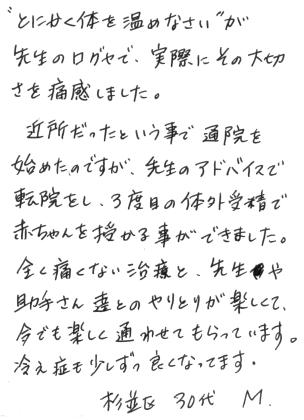 "とにかく体を温めなさい"が
先生のログセで、実際にその大切
さを痛感しました。
近所だったという事で通院を
始めたのですが、先生のアドバイスで
転院をし、3度目の体外受精で
赤ちゃんを授かる事ができました。
全く痛くない治療と、先生や
助手さん達とのやりとりが楽しくて、
今でも楽しく通わせてもらっています。
冷え症も少しずつ良くなってます。
杉並区 30代 M.